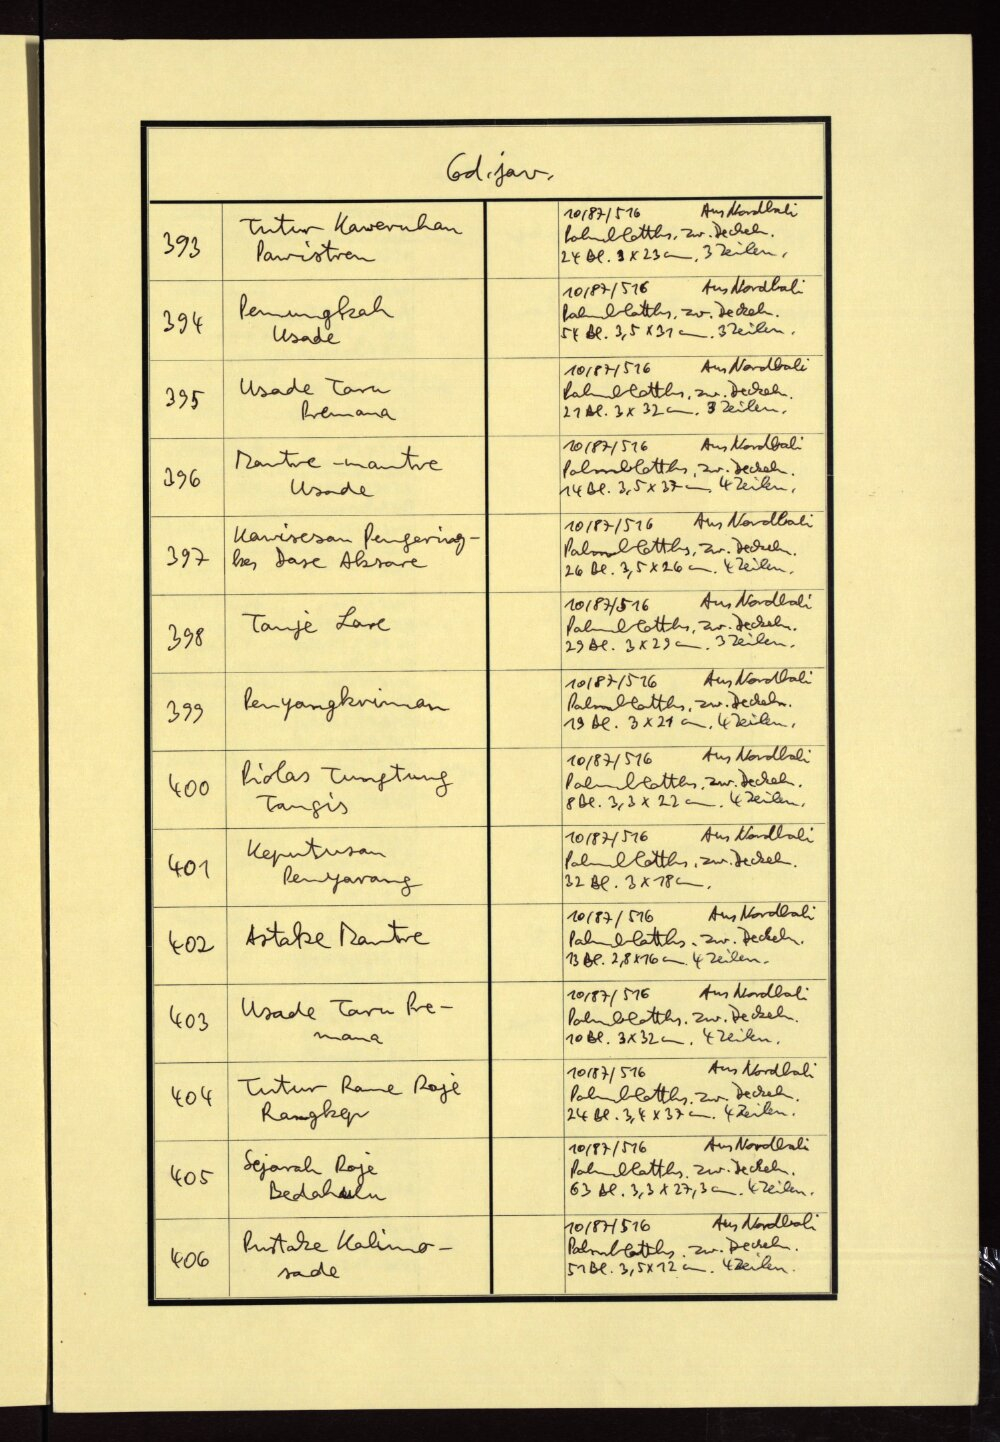 Cd. jav.
393
Tutur Kaweruhan
Pawistren
10/87/516 Aus Nordbali
Palmblatths, zw. Deckeln.
24 Bl. 3 x 23 cm. 3 Zeilen.
394
Pemungkah
Usade
10/87/516 Aus Nordbali
Palmblatths, zw. Deckeln.
54 Bl. 3,5 x 31 cm. 3 Zeilen.
395
Usade Taru
Premana
10/87/516 Aus Nordbali
Palmblatths, zw. Deckeln.
21 Bl. 3 x 32 cm. 3 Zeilen.
396
Mantre-mantre
Usade
10/87/516 Aus Nordbali
Palmblatths, zw. Deckeln.
14 Bl. 3,5 x 37 cm. 4 Zeilen.
397
Kawisesan Pengering-
kes Dase Aksare
10/87/516 Aus Nordbali
Palmblatths, zw. Deckeln.
26 Bl. 3,5 x 26 cm. 4 Zeilen.
398
Tanje Lare
10/87/516 Aus Nordbali
Palmblatths, zw. Deckeln.
29 Bl. 3 x 29 cm. 3 Zeilen.
399
Penyangkriman
10/87/516 Aus Nordbali
Palmblatths, zw. Deckeln.
19 Bl. 3 x 21 cm. 4 Zeilen.
400
Piolas Tungtung
Tangis
10/87/516 Aus Nordbali
Palmblatths, zw. Deckeln.
8 Bl. 3,3 x 22 cm. 4 Zeilen.
401
Keputusan
Penyarang
10/87/516 Aus Nordbali
Palmblatths, zw. Deckeln.
32 Bl. 3 x 18 cm.
402
Astake Mantre
10/87/516 Aus Nordbali
Palmblatths. zw. Deckeln.
13 Bl. 2,8 x 16 cm. 4 Zeilen.
403
Usade Taru Pre-
mana
10/87/516 Aus Nordbali
Palmblatths. zw. Deckeln.
10 Bl. 3 x 32 cm. 4 Zeilen.
404
Tutur Rane Raje
Rangkep
10/87/516 Aus Nordbali
Palmblatths. zw. Deckeln.
24 Bl. 3,4 x 37 cm. 4 Zeilen.
405
Sejarah Raje
Bedahulu
10/87/516 Aus Nordbali
Palmblatths. zw. Deckeln.
63 Bl. 3,3 x 27,3 cm. 4 Zeilen.
406
Pustake Kalimo-
sade
10/87/516 Aus Nordbali
Palmblatths. zw. Deckeln.
51 Bl. 3,5 x 12 cm. 4 Zeilen.